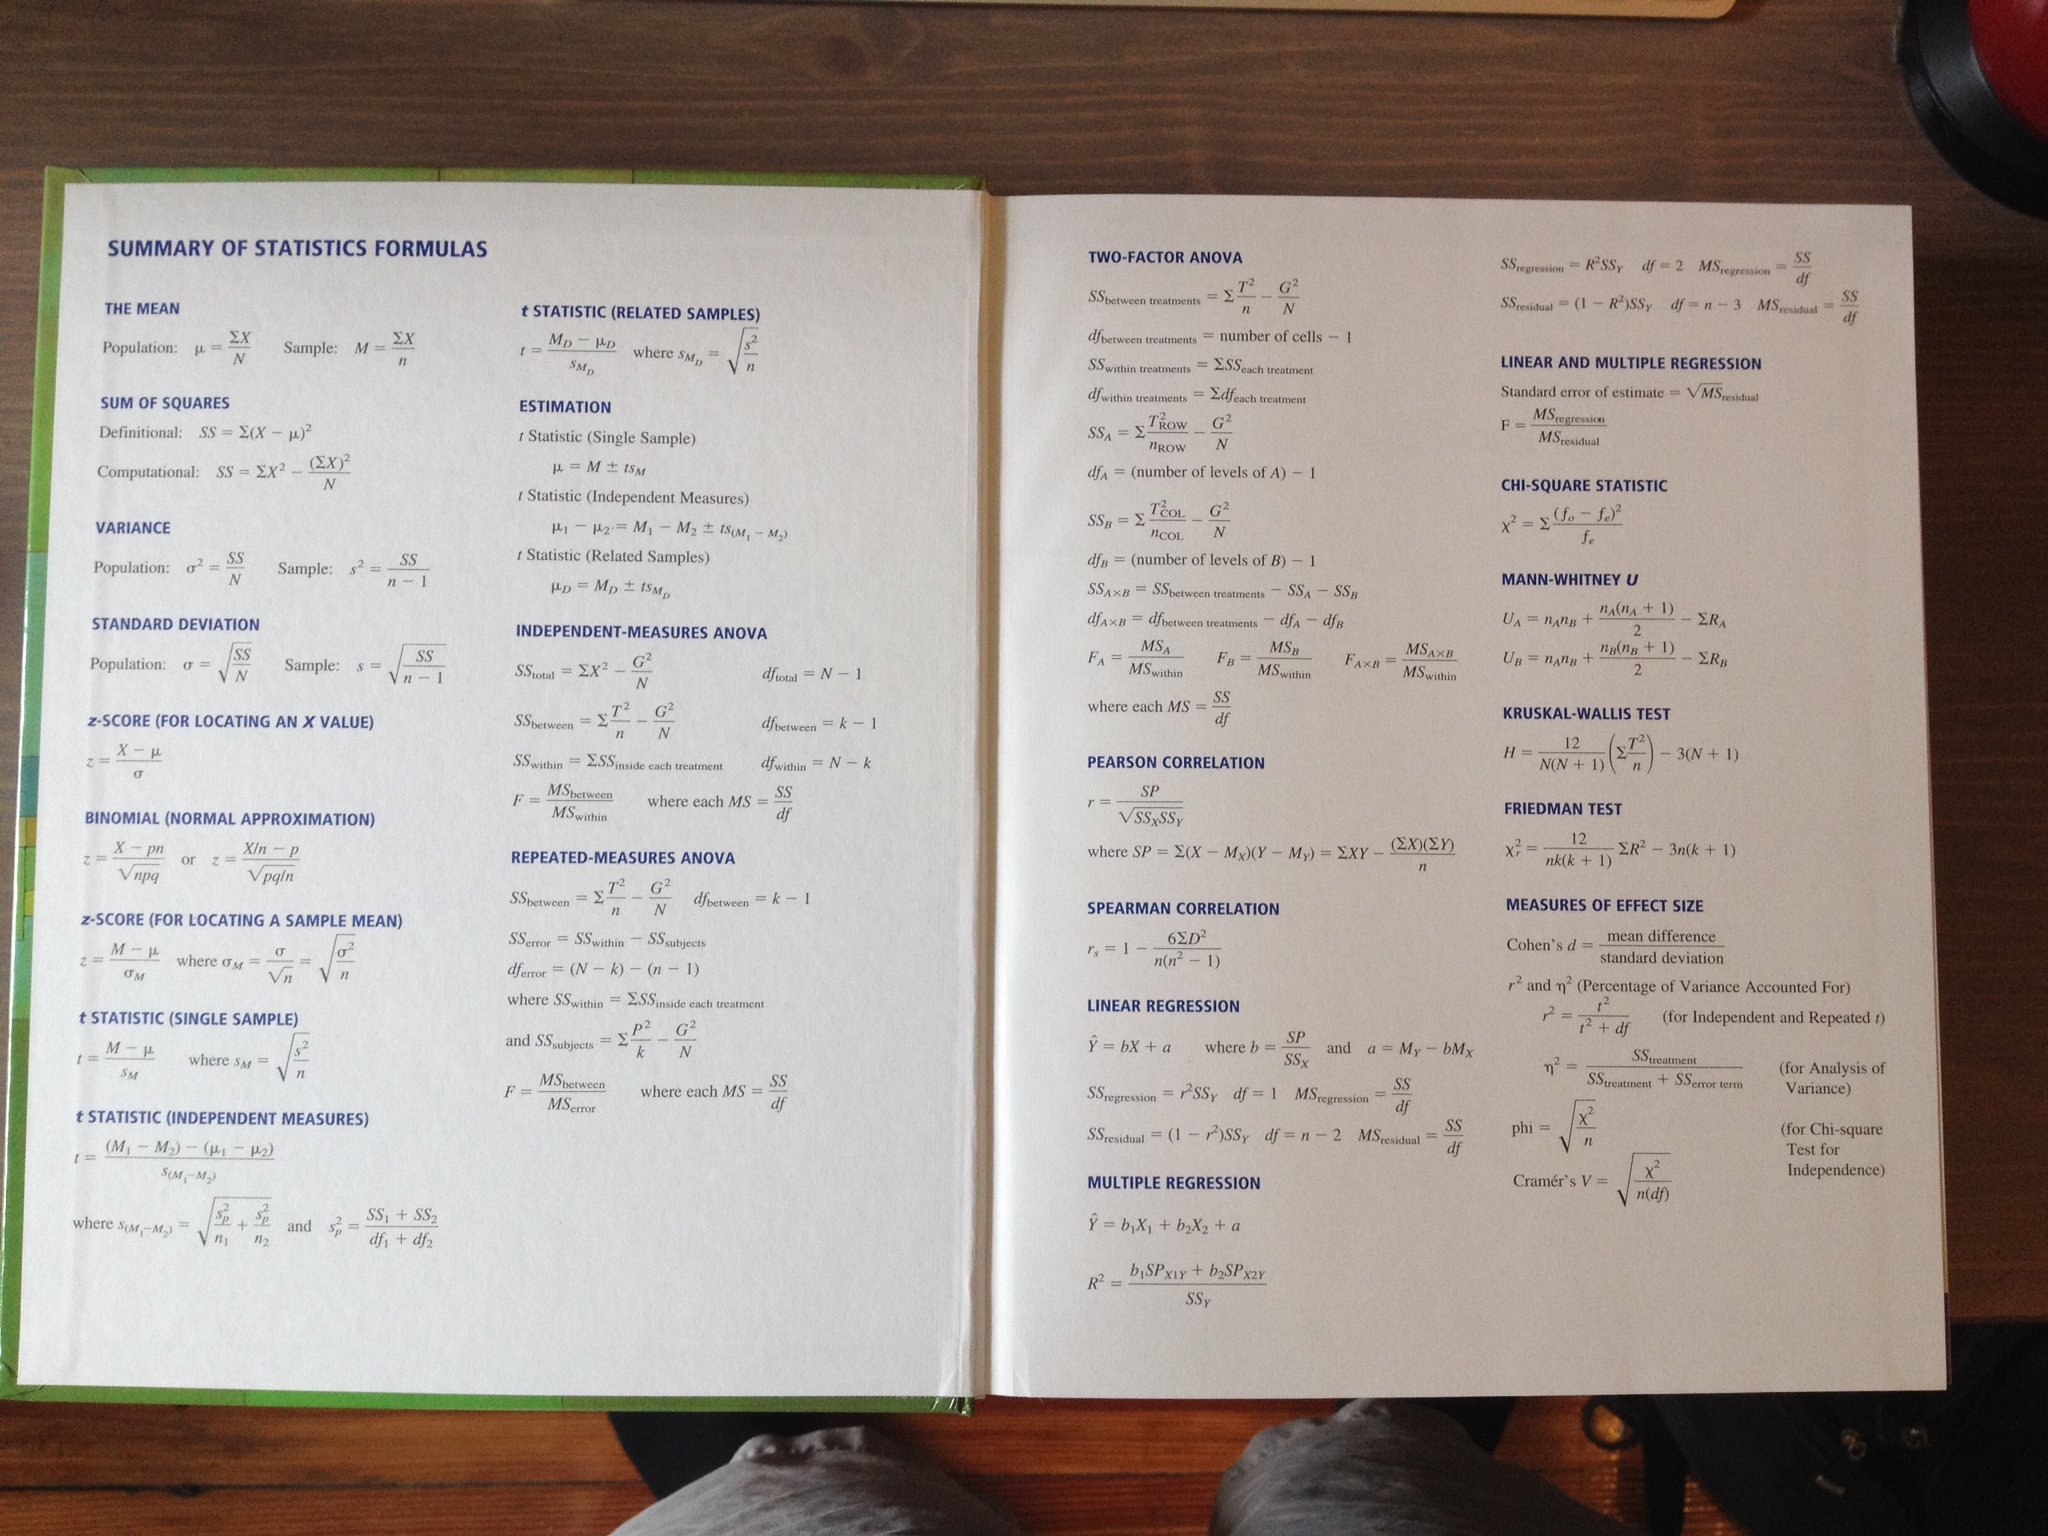 SUMMARY OF STATISTICS FORMULAS
THE MEAN
Population: μ = ΣX/N Sample: M = ΣX/n
SUM OF SQUARES
Definitional: SS = Σ(X − μ)²
Computational: SS = ΣX² − (ΣX)²/N
VARIANCE
Population: σ² = SS/N Sample: s² = SS/(n − 1)
STANDARD DEVIATION
Population: σ = √(SS/N) Sample: s = √(SS/(n − 1))
z-SCORE (FOR LOCATING AN X VALUE)
z = (X − μ)/σ
BINOMIAL (NORMAL APPROXIMATION)
z = (X − pn)/√npq or z = (X/n − p)/√(pq/n)
z-SCORE (FOR LOCATING A SAMPLE MEAN)
z = (M − μ)/σ_M where σ_M = σ/√n = √(σ²/n)
t STATISTIC (SINGLE SAMPLE)
t = (M − μ)/s_M where s_M = √(s²/n)
t STATISTIC (INDEPENDENT MEASURES)
t = ((M₁ − M₂) − (μ₁ − μ₂))/s_(M₁−M₂)
where s_(M₁−M₂) = √(s²_p/n₁ + s²_p/n₂) and s²_p = (SS₁ + SS₂)/(df₁ + df₂)
t STATISTIC (RELATED SAMPLES)
t = (M_D − μ_D)/s_M_D where s_M_D = √(s²/n)
ESTIMATION
t Statistic (Single Sample)
μ = M ± ts_M
t Statistic (Independent Measures)
μ₁ − μ₂ = M₁ − M₂ ± ts_(M₁ − M₂)
t Statistic (Related Samples)
μ_D = M_D ± ts_M_D
INDEPENDENT-MEASURES ANOVA
SS_total = ΣX² − G²/N df_total = N − 1
SS_between = Σ T²/n − G²/N df_between = k − 1
SS_within = ΣSS_inside each treatment df_within = N − k
F = MS_between/MS_within where each MS = SS/df
REPEATED-MEASURES ANOVA
SS_between = Σ T²/n − G²/N df_between = k − 1
SS_error = SS_within − SS_subjects
df_error = (N − k) − (n − 1)
where SS_within = ΣSS_inside each treatment
and SS_subjects = Σ P²/k − G²/N
F = MS_between/MS_error where each MS = SS/df
TWO-FACTOR ANOVA
SS_between treatments = Σ T²/n − G²/N
df_between treatments = number of cells − 1
SS_within treatments = ΣSS_each treatment
df_within treatments = Σdf_each treatment
SS_A = Σ T²_ROW/n_ROW − G²/N
df_A = (number of levels of A) − 1
SS_B = Σ T²_COL/n_COL − G²/N
df_B = (number of levels of B) − 1
SS_A×B = SS_between treatments − SS_A − SS_B
df_A×B = df_between treatments − df_A − df_B
F_A = MS_A/MS_within F_B = MS_B/MS_within F_A×B = MS_A×B/MS_within
where each MS = SS/df
PEARSON CORRELATION
r = SP/√(SS_X SS_Y)
where SP = Σ(X − M_X)(Y − M_Y) = ΣXY − (ΣX)(ΣY)/n
SPEARMAN CORRELATION
r_s = 1 − 6ΣD²/(n(n² − 1))
LINEAR REGRESSION
Ŷ = bX + a where b = SP/SS_X and a = M_Y − bM_X
SS_regression = r²SS_Y df = 1 MS_regression = SS/df
SS_residual = (1 − r²)SS_Y df = n − 2 MS_residual = SS/df
MULTIPLE REGRESSION
Ŷ = b₁X₁ + b₂X₂ + a
R² = (b₁SP_X1Y + b₂SP_X2Y)/SS_Y
SS_regression = R²SS_Y df = 2 MS_regression = SS/df
SS_residual = (1 − R²)SS_Y df = n − 3 MS_residual = SS/df
LINEAR AND MULTIPLE REGRESSION
Standard error of estimate = √MS_residual
F = MS_regression/MS_residual
CHI-SQUARE STATISTIC
χ² = Σ (f_o − f_e)²/f_e
MANN-WHITNEY U
U_A = n_A n_B + n_A(n_A + 1)/2 − ΣR_A
U_B = n_A n_B + n_B(n_B + 1)/2 − ΣR_B
KRUSKAL-WALLIS TEST
H = 12/(N(N + 1)) (Σ T²/n) − 3(N + 1)
FRIEDMAN TEST
χ²_r = 12/(nk(k + 1)) ΣR² − 3n(k + 1)
MEASURES OF EFFECT SIZE
Cohen's d = mean difference/standard deviation
r² and η² (Percentage of Variance Accounted For)
r² = t²/(t² + df) (for Independent and Repeated t)
η² = SS_treatment/(SS_treatment + SS_error term) (for Analysis of
Variance)
phi = √(χ²/n) (for Chi-square
Test for
Independence)
Cramér's V = √(χ²/n(df))